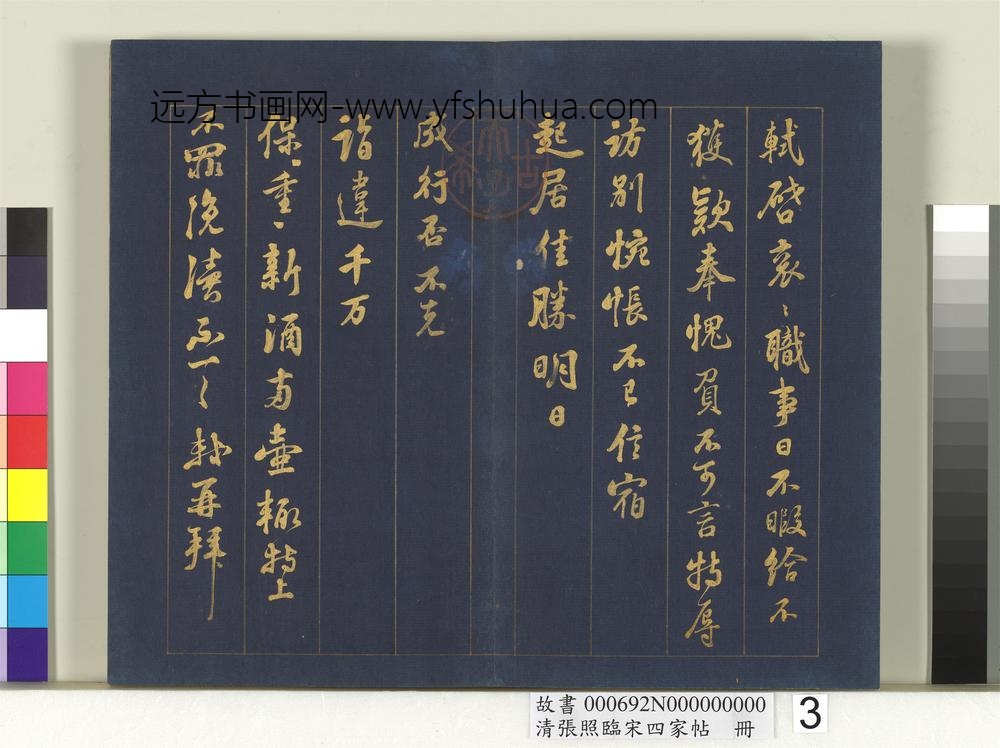 远方书画网-www.yfshuhua.com
軾啓衮〻職事日不暇給不
獲款奉愧負不可言特辱
訪別惋悵不已信宿
起居佳勝明日
成行否不克
詣違千万
保重〻新酒兩壺輒特上
不罪浼瀆不一〻軾再拜
故書 000692N000000000
清張照臨宋四家帖 冊
3